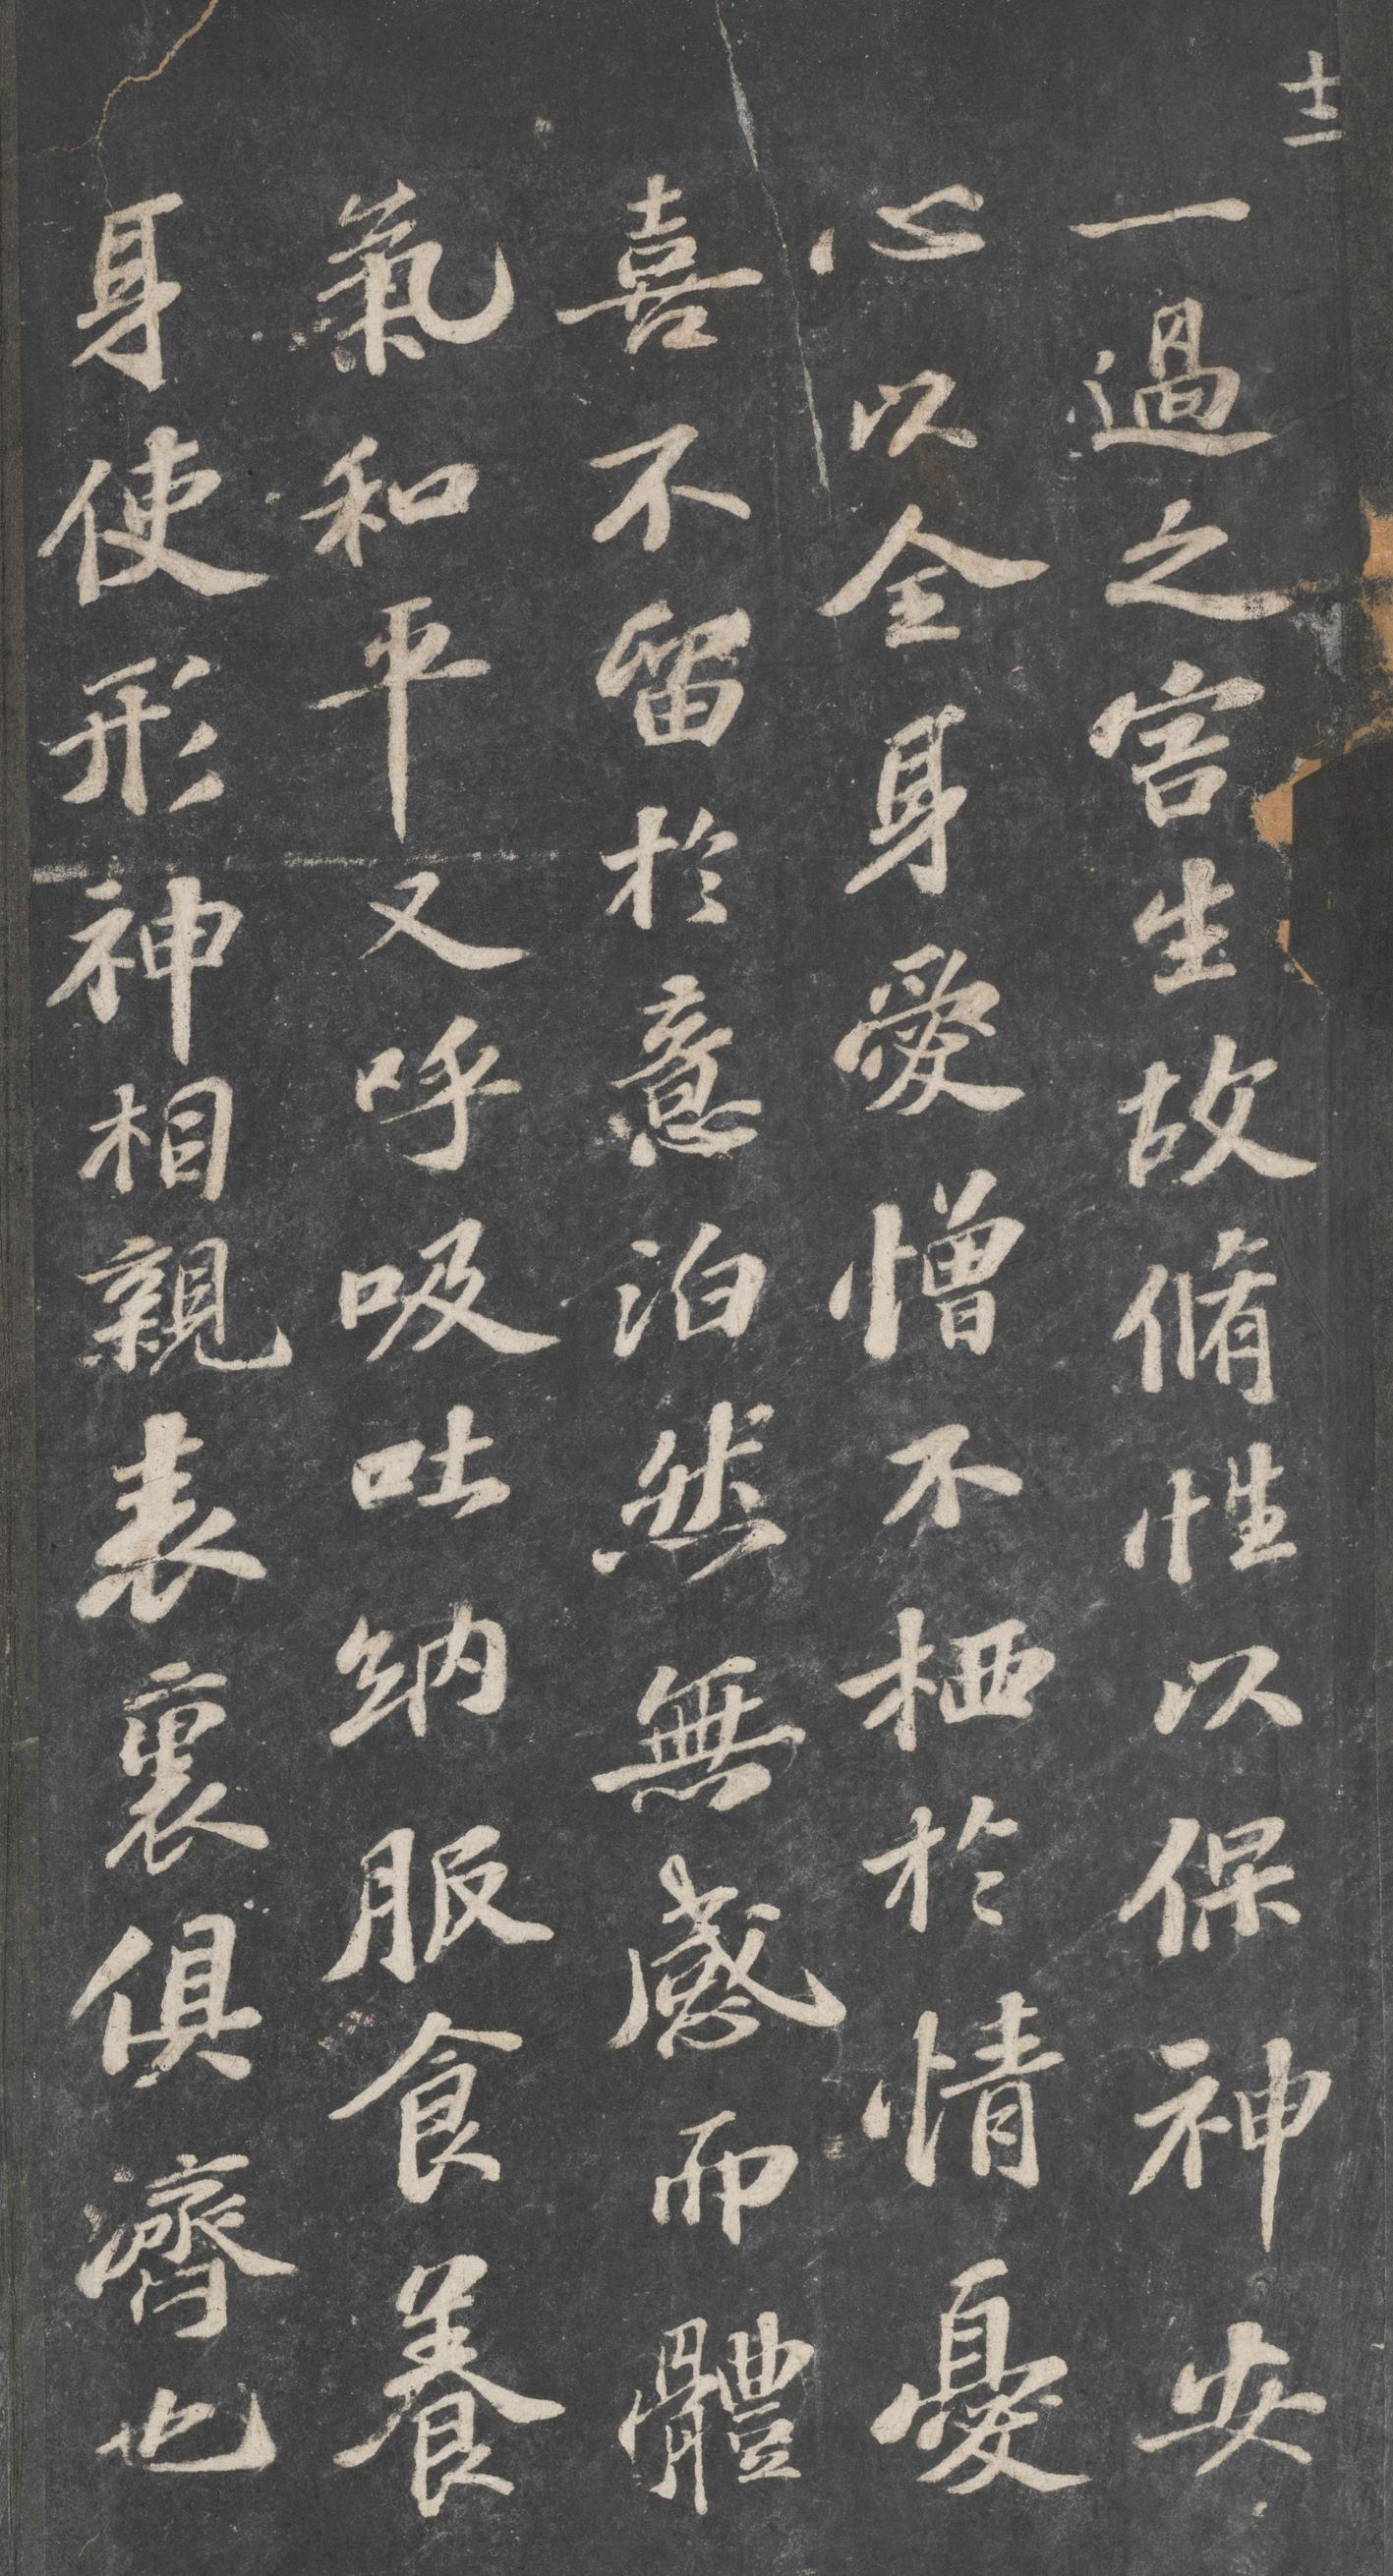 十二
一過之害生故脩性以保神安
心以全身愛憎不栖於情憂
喜不留於意泊然無感而體
氣和平又呼吸吐納服食養
身使形神相親表裏俱濟也